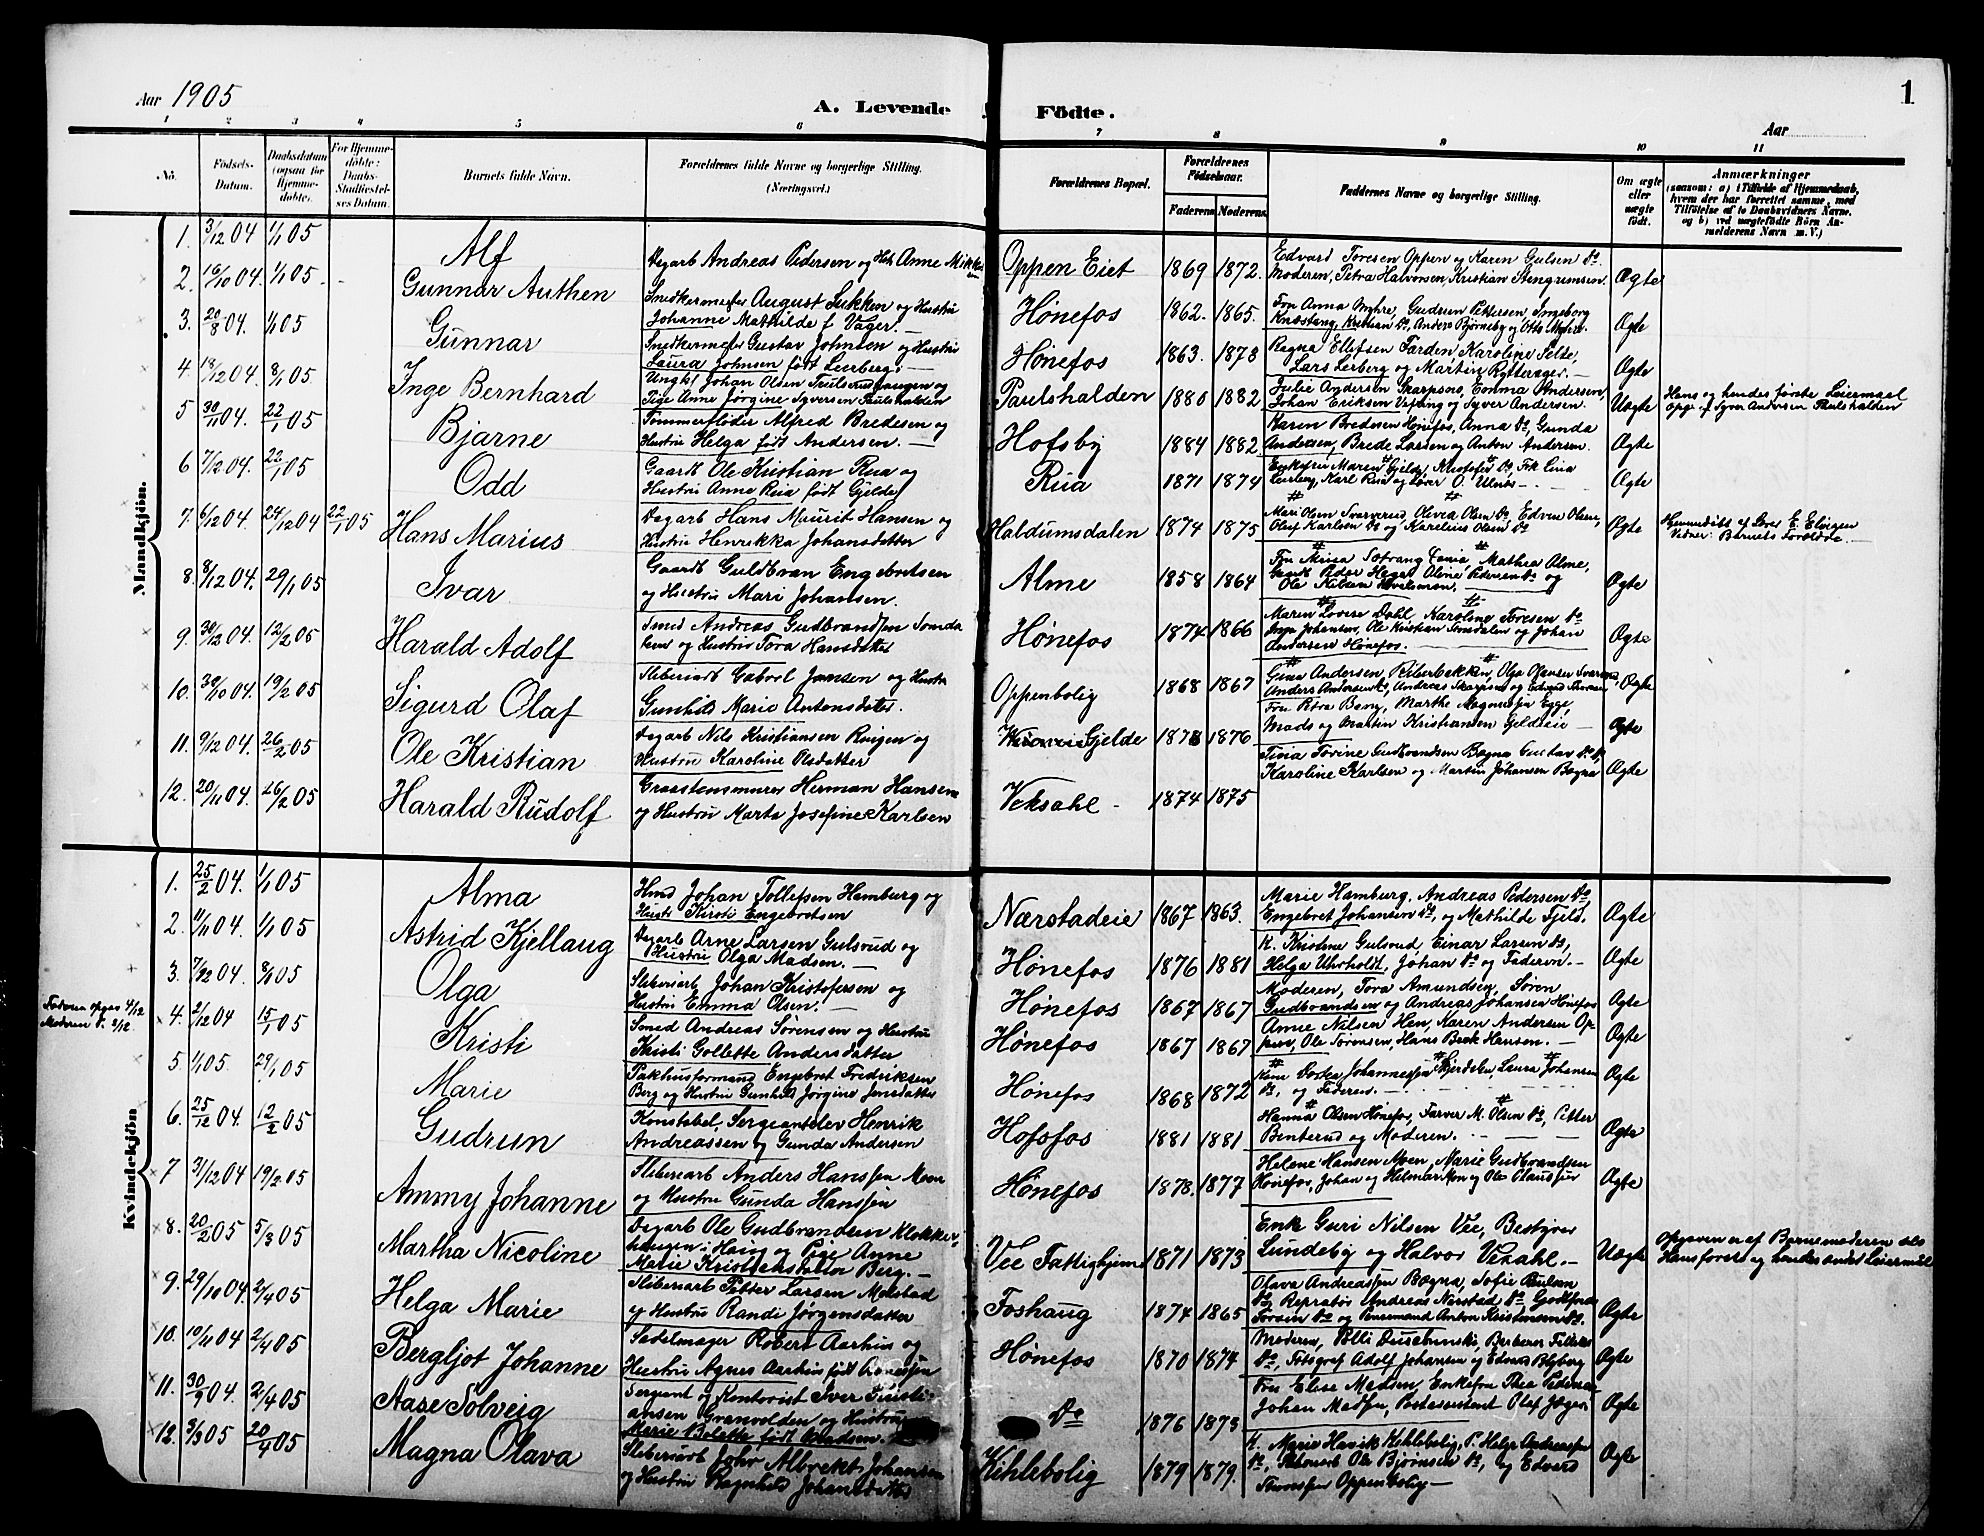 Aar 1905
A. Levende Födte.
1
Aar
1 2 3 4 5 6 7 8 9 10 11
No.
Födsels-Datum.
Daabsdatum (ogsaa for Hjemmedöbte).
For Hjemmedöbte: Daabs-Stadfæstelses Datum.
Barnets fulde Navn.
Forældrenes fulde Navne og borgerlige Stilling. (Næringsvei.)
Forældrenes Bopæl.
Forældrenes Födselsaar.
Faderens Moderens
Faddernes Navne og borgerlige Stilling.
Om ægte eller uægte födt.
Anmærkninger
(saasom: a) i Tilfælde af Hjemmedaab, hvem der har forrettet samme, med Tilföielse af to Daabsvidners Navne, og b) ved uægtefödte Börn Anmelderens Navn m. V.)
Mandkjön.
1. 3/12 04 1/1 05 Alf Dagarb Andreas Pedersen og Hst. Anne Oppen Eiet 1869 1872 Edvard Toresen Oppen og Karen Gulsen Do Moderen, Petra Halvorsen, Kristian Stengrimsen Ægte
2. 16/10 04. 1/1 05 Gunnar Authen Snedkermester August Lukken og Hustru Johanne Mathilde f. Vager. Hønefos 1862. 1865. Fru Anna Myhre, Gudrun Pettersen, Ingeborg Knestang, Kristian Do, Anders Bjørneby og Otto Myhre. Ægte
3. 20/8 04. 1/1 05 Gunnar Snedkermester Gustav Johnsen og Hustru Laura Johnsen født Leerberg. Hønefos 1863. 1878 Ragna Ellefsen Farden, Karoline Selte, Lars Lerberg og Martin Rytterager. Ægte
4. 18/12 04. 8/1 05 Inge Bernhard Ungk. Johan Olsen og Pige Anne Jørgine Syversen Paulshalden Paulshalden 1880 1882 Julie Andersen, Emma Andersen, Johan Eriksen og Syver Andersen. Uægte Hans og hendes første Leiermaal opg. f Syver Andersen Paulshalden
5 30/11 04. 22/1 05 Bjarne Tømmerfløder Alfred Bredesen og Hustru Helga født Andersen. Hofsby 1884 1882 Karen Bredesen Hønefos, Anna Do, Gunda Andersen, Brede Larsen og Anton Andersen. Ægte
6 7/12 04. 22/1 05 Odd Gaardb Ole Kristian Rua og Hustru Anne Rua født Gjelde Rua 1871 1874 Enkefru Maren Gjelde, Kristofer Do, Frk Lina Leerberg, Karl Rua og Lærer O. Ulnes Ægte
7. 6/12 04. 24/12 04 22/1 05 Hans Marius Dagarb Hans Maurit Hansen og Hustru Henrikka Johansdatter Haldumsdalen 1874 1875 Mari Olsen, Olivia Olsen Do, Edven Olsen, Olaf Karlsen Do og Karelius Olsen Do Ægte Hjemmedøbt af Lærer E. Elvigen Vidner: Barnets Forældre.
8. 8/12 04. 29/1 05 Ivar Gaardb Guldbran Engebretsen og Hustru Mari Johansen. Alme 1858 1864 Fru Mina, Mathea Alme, Gaardb Peder Heger, Oline Pedersen Do og Ole Nilsen Ægte
9. 30/12 04. 12/2 05 Harald Adolf Smed Andreas Gudbrandsen og Hustru Tora Hansdatter Hønefos 1874 1866 Maren Lovise Dahl, Karoline Toresen Do Johansen, Ole Kristian og Johan Andersen Hønefos. Ægte
10. 30/10 04. 19/2 05 Sigurd Olaf Sliberiarb Gabrel Jansen og Hustru Gunhild Marie Antonsdatter. Oppenbolig 1868 1867 Gina Andersen, Olga Olsen, Anders Andersen, Andreas og Edvard Thoresen Ægte
11. 9/12 04. 26/2 05 Ole Kristian Dagarb Nils Kristiansen Roigen og Hustru Karoline Olsdatter Gjelde 1878 1876 Fru Petra Berg, Marthe Magnesen Egge, Mads og Martin Kristiansen Geldeeie Ægte
12. 20/11 04. 26/2 05 Harald Rudolf Graastensmurer Herman Hansen og Hustru Marta Josefine Karlsen Veksahl 1874 1875 Tina Torine Gudbrandsen Bægna, Gustav Do, Karoline Karlsen og Martin Johansen Bægna Ægte
Kvindekjön
1. 25/2 04. 1/1 05 Alma Hmd Johan Tollefsen Hamburg og Hustr Kirsti Engebretsen Nærstadeie 1867 1863. Marie Hamburg, Andreas Pedersen Do, Engebret Johansen Do, og Mathilde Fjeld. Ægte
2. 11/11 04. 1/1 05 Astrid Kjellaug Dagarb Arne Larsen Gulsrud og Hustru Olga Madsen. Hønefos 1876 1881 K. Kristine Gulsrud, Einar Larsen Do, Helga Uhrholdt, Johan Do og Faderen. Ægte
3. 7/12 04. 8/1 05 Olga Sliberiarb Johan Kristofersen og Hustru Emma Olsen. Hønefos 1867 1867 Moderen, Tora Amundsen, Søren Gudbrandsen og Andreas Johansen Hønefos Ægte
Faderen opgav 4/12
Moderen 2/12
4. 2/12 04 15/1 05 Kristi Smed Andreas Sørensen og Hustru Kristi Gollette Andersdatter Hønefos 1867 1867 Anne Nilsen Hen, Karen Andersen Oppen, Ole Sørensen, Hans Berk Hansen. Ægte
5. 1/1 05. 29/1 05 Marie Pakhusformand Engebret Fredriksen Berg og Hustru Gunhild Jørgine Jensdatter Hønefos 1868 1872 Kone Dorka Johannesen Skjerdalen, Laura Johansen Do, og Faderen. Ægte
6. 25/12 04. 12/2 05 Gudrun Konstabel, Sergeantelev Henrik Andreassen og Gunda Andersen Hofsfos 1881 1881 Hanna Olsen Hønefos, Farver M. Olsen Do, Petter Benterud og Moderen. Ægte
7 31/12 04 19/2 05 Ammy Johanne Sliberiarb Anders Hanssen Moen og Hustru Gunda Hanssen Hønefos 1878. 1877 Helene Hansen Moen, Marie Gudbrandsen Hønefos, Johan og Helmar Moen og Ole Claussen Ægte
8. 20/2 05 5/3 05 Martha Nicoline Dagarb Ole Gudbrandsen Klokkerhaugen i Haug og Pige Anne Marie Kristiansdatter Berg. Vee Fattighjem 1871 1873 Enke Guri Nilsen Vee, Bestyrer Lundeby og Halvor Vesahl. Uægte Opgaven er af Barnemoderen als Hans første og hendes andet Leiermål
9. 29/10 04. 2/4 05 Helga Marie Sliberiarb Petter Larsen Melstad og Hustru Randi Jørgensdatter Foshaug 1874 1865 Olava Andreassen Bægna, Sofie Paulsen Do, Reparatør Andreas Nerstad Do, Godtfred Do og Anton Kristiansen Do. Ægte
10. 10/11 04 2/4 05 Bergljot Johanne Sadelmager Robert Aarhus og Hustru Agnes Aarhus født Arnesen Hønefos 1870 1874 Moderen, Polli, Fotograf Adolf Johansen og Edvard Blyberg Ægte
11. 30/9 04. 2/4 05 Aase Solveig Sergent og Kontorist Iver Kristiansen Granvolden og Hustru Marie Bolette født Madsen. Do 1876 1873 Fru Elise Madsen, Enkefru Thea Pedersen, Johan Madsen, Postassistent Olaf Jæger Ægte
12. 3/3 05 20/4 05 Magna Olava Sliberiarb Johr Albrekt Johansen og Hustru Ragnhild Johansdatter Kihlebolig 1879 1879. K. Marie Havik Kehlebolig, P. Helga Andreassen Do, Ole Bjørnsen Do, og Edvard Thoresen Oppenbolig Ægte